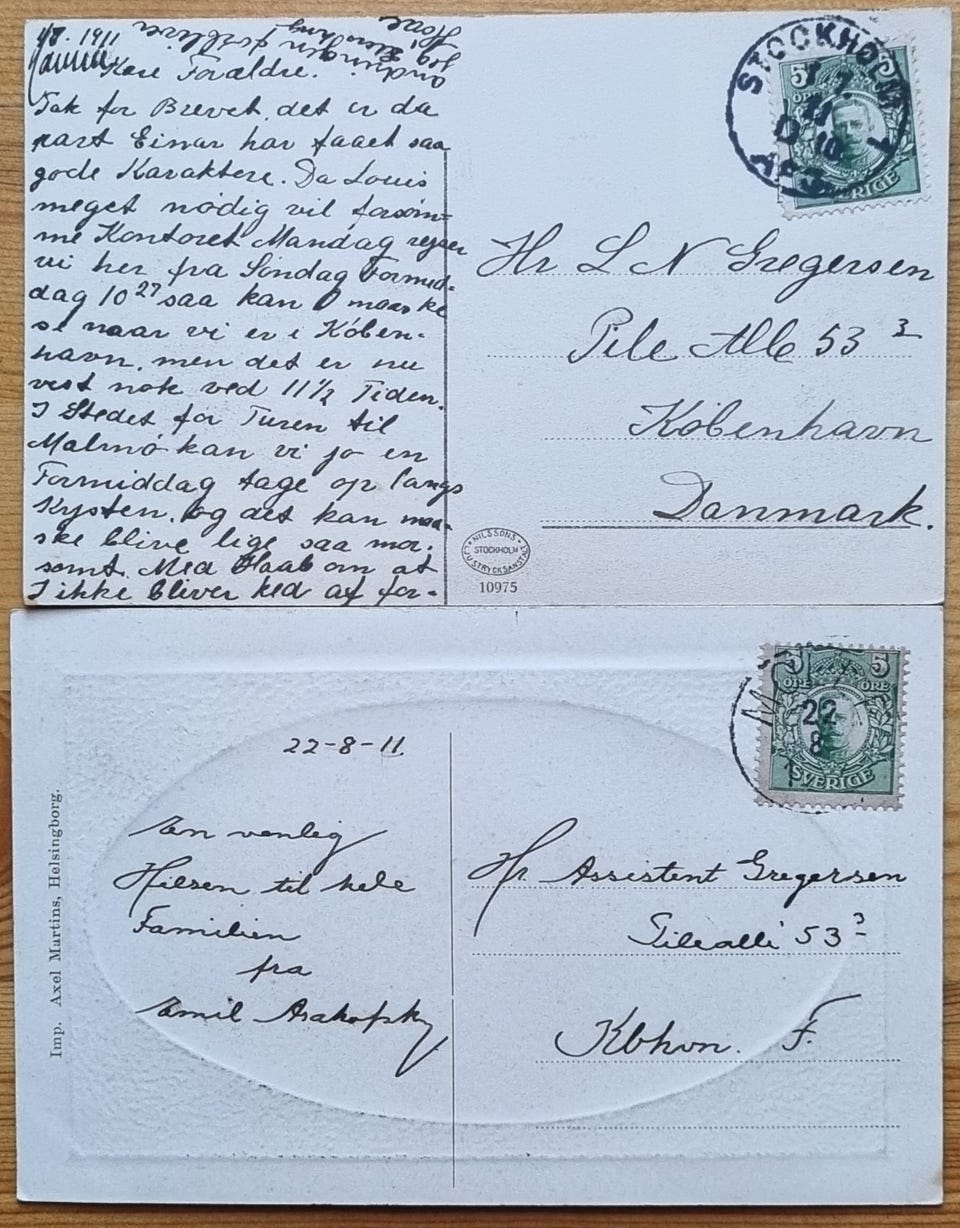 1/8. 1911
Kære Forældre.
Tak for Brevet, det er da
rart Einar har faaet saa
gode Karaktere. Da Louis
meget nödig vil forsöm-
me Kontoret Mandag rejser
vi her fra Söndag Formid-
dag 10 27 saa kan I maaske
se naar vi er i Köben-
havn, men det er nu
vist nok ved 11½ Tiden.
I Stedet for Turen til
Malmö kan vi jo en
Formiddag tage op langs
Kysten, og det kan maa-
ske blive lige saa mor-
somt. Med Haab om at
I ikke bliver ked af for-
STOCKHOLM 1
AFG
5 5
ÖRE
SVERIGE
Hr L N Gregersen
Pile Alle 53 3
København
Danmark.
NILSSONS
LJUSTRYCKSANSTALT
STOCKHOLM
10975
Imp. Axel Martins, Helsingborg.
22-8-11.
En venlig
Hilsen til hele
Familien
fra
Emil
5 5
ÖRE ÖRE
22
8
SVERIGE
Hr. Assistent Gregersen
Pileallé 53 3
Kbhvn. F.